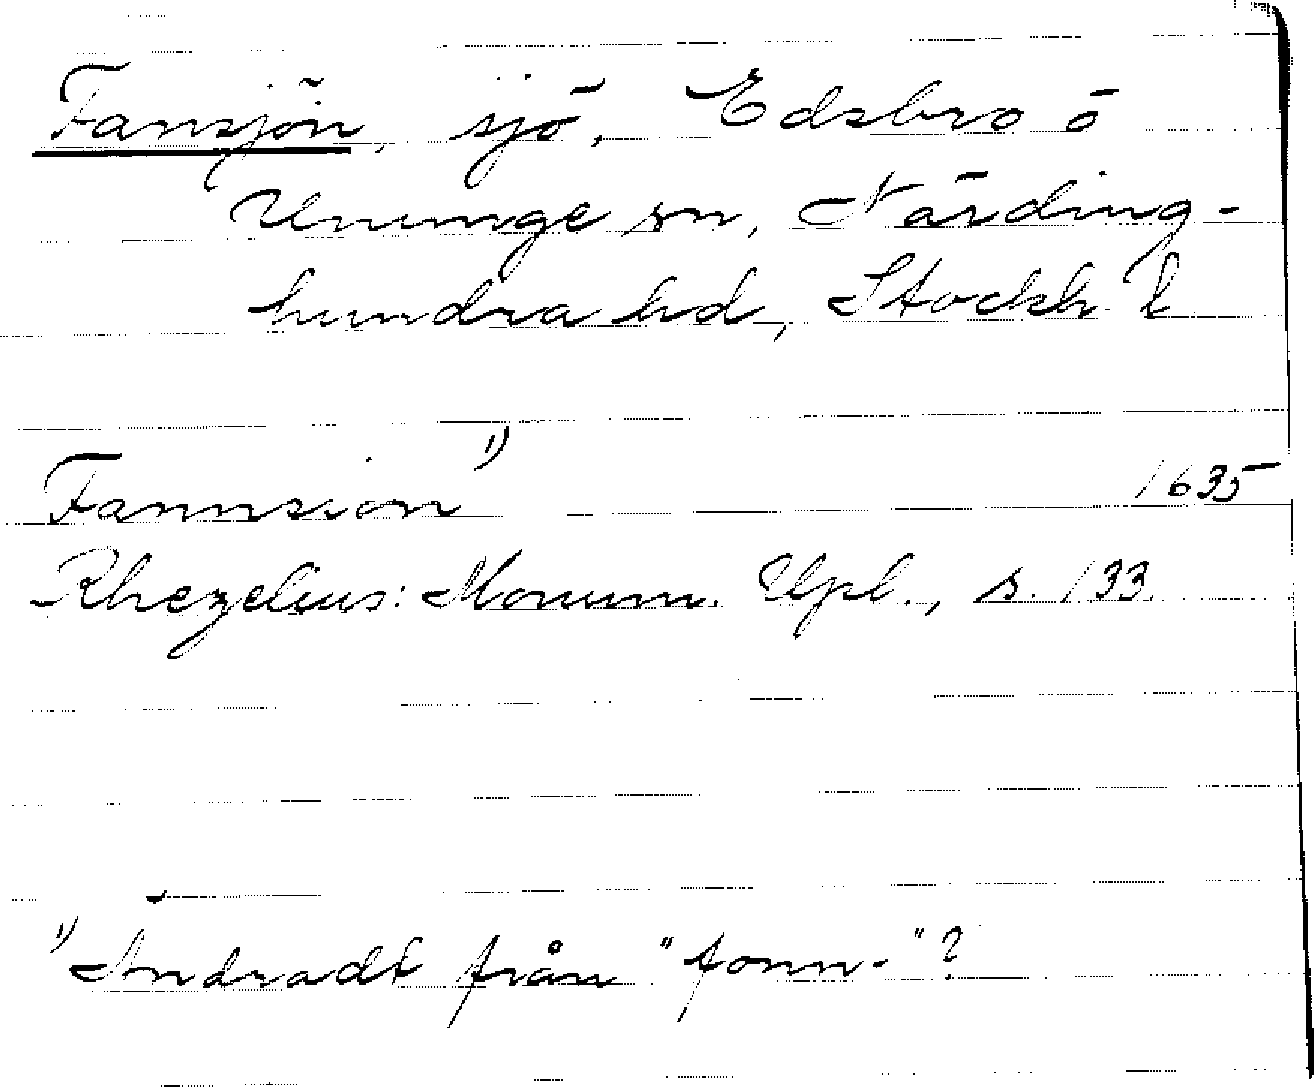 Fansjön, sjö, Edsbro o
Ununge sn, Närding-
hundra hd, Stockh. l
Fannsion 1) 1635
Rhezelius: Monum. Upl., s. 133.
1) Ändradt från "fonn-"?